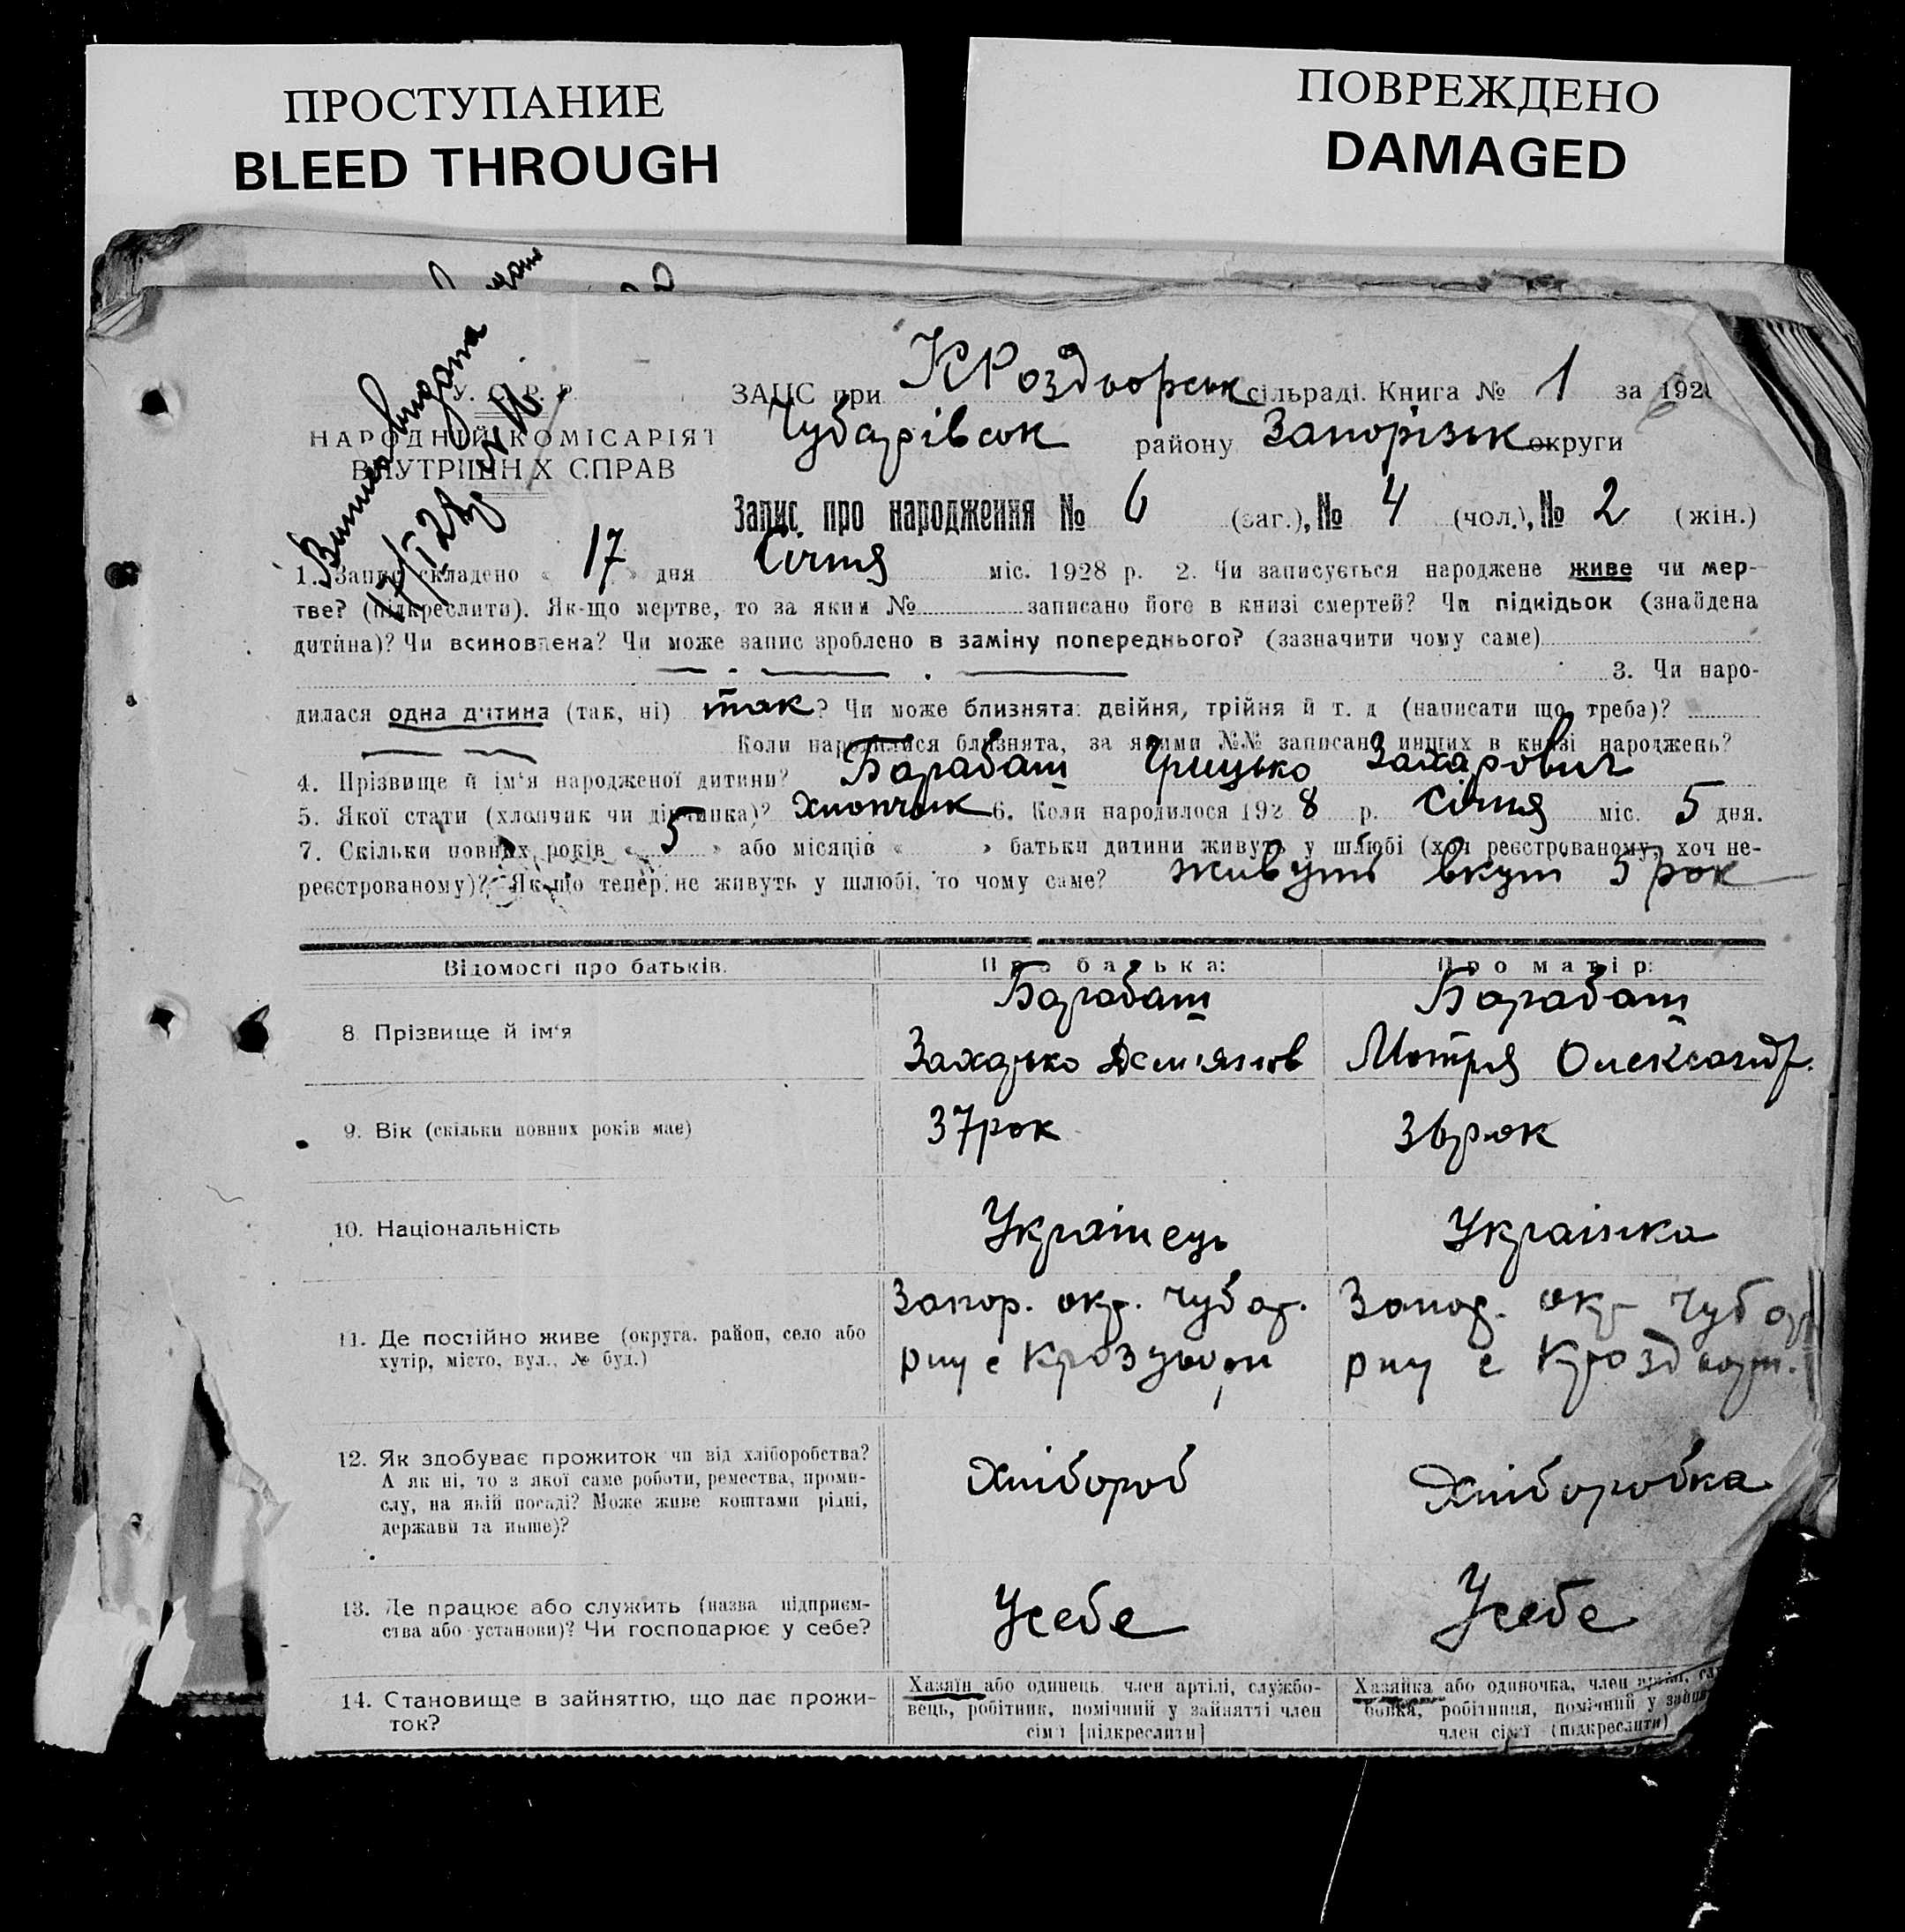 ПРОСТУПАНИЕ
BLEED THROUGH
ПОВРЕЖДЕНО
DAMAGED
У. С. Р. Р.
НАРОДНІЙ КОМІСАРІЯТ
ВНУТРІШНІХ СПРАВ
17/I 28р
ЗАЦС при КРоздорськ сільраді. Книга № 1 за 192
Чубарівськ району Запорізьк округи
Запис про народження № 6 (заг.), № 4 (чол.), № 2 (жін.)
1. Запис складено « 17 » дня Січня міс. 1928 р. 2. Чи записується народжене живе чи мер-
тве? (підкреслити). Як-що мертве, то за яким № записано його в книзі смертей? Чи підкідьок (знайдена
дитина)? Чи всиновлена? Чи може запис зроблено в заміну попереднього? (зазначити чому саме)
3. Чи наро-
дилася одна дитина (так, ні) так? Чи може близнята: двійня, трійня й т. д (написати що треба)?
Коли народилися близнята, за якими №№ записано инших в книзі народжень?
4. Прізвище й ім'я народженої дитини? Барабаш Грицько Захарович
5. Якої стати (хлопчик чи дівчинка)? Хлопчик 6. Коли народилося 1928 р. Січня міс. 5 дня.
7. Скільки повних років « 5 » або місяців « » батьки дитини живуть у шлюбі (хоч реєстрованому, хоч не-
реєстрованому)? Як-що тепер не живуть у шлюбі, то чому саме? живуть вкуп 5 рок
Відомості про батьків. Про батька: Про матір:
Барабаш Барабаш
8 Прізвище й ім'я Захарко Дем'янов Мотря Олександр.
9. Вік (скільки повних років має) 37рок 36рок
10. Національність Українець Українка
Запор. окр. Чубар. Запор. окр Чубар
11. Де постійно живе (округа, район, село або
хутір, місто, вул., № буд.)
12. Як здобуває прожиток чи від хліборобства? Хлібороб Хліборобка
А як ні, то з якої саме роботи, ремества, проми-
слу, на якій посаді? Може живе коштами рідні,
держави та инше)?
13. Де працює або служить (назва підприєм- Усебе Усебе
ства або установи)? Чи господарює у себе?
14. Становище в зайняттю, що дає прожи-
ток?
Хазяїн або одинець, член артілі, службо-
вець, робітник, помічний у зайнятті член
сім'ї [підкреслити]
Хазяйка або одиночка, член артілі,
бовка, робітниця, помічний у
член сім'ї (підкреслити)